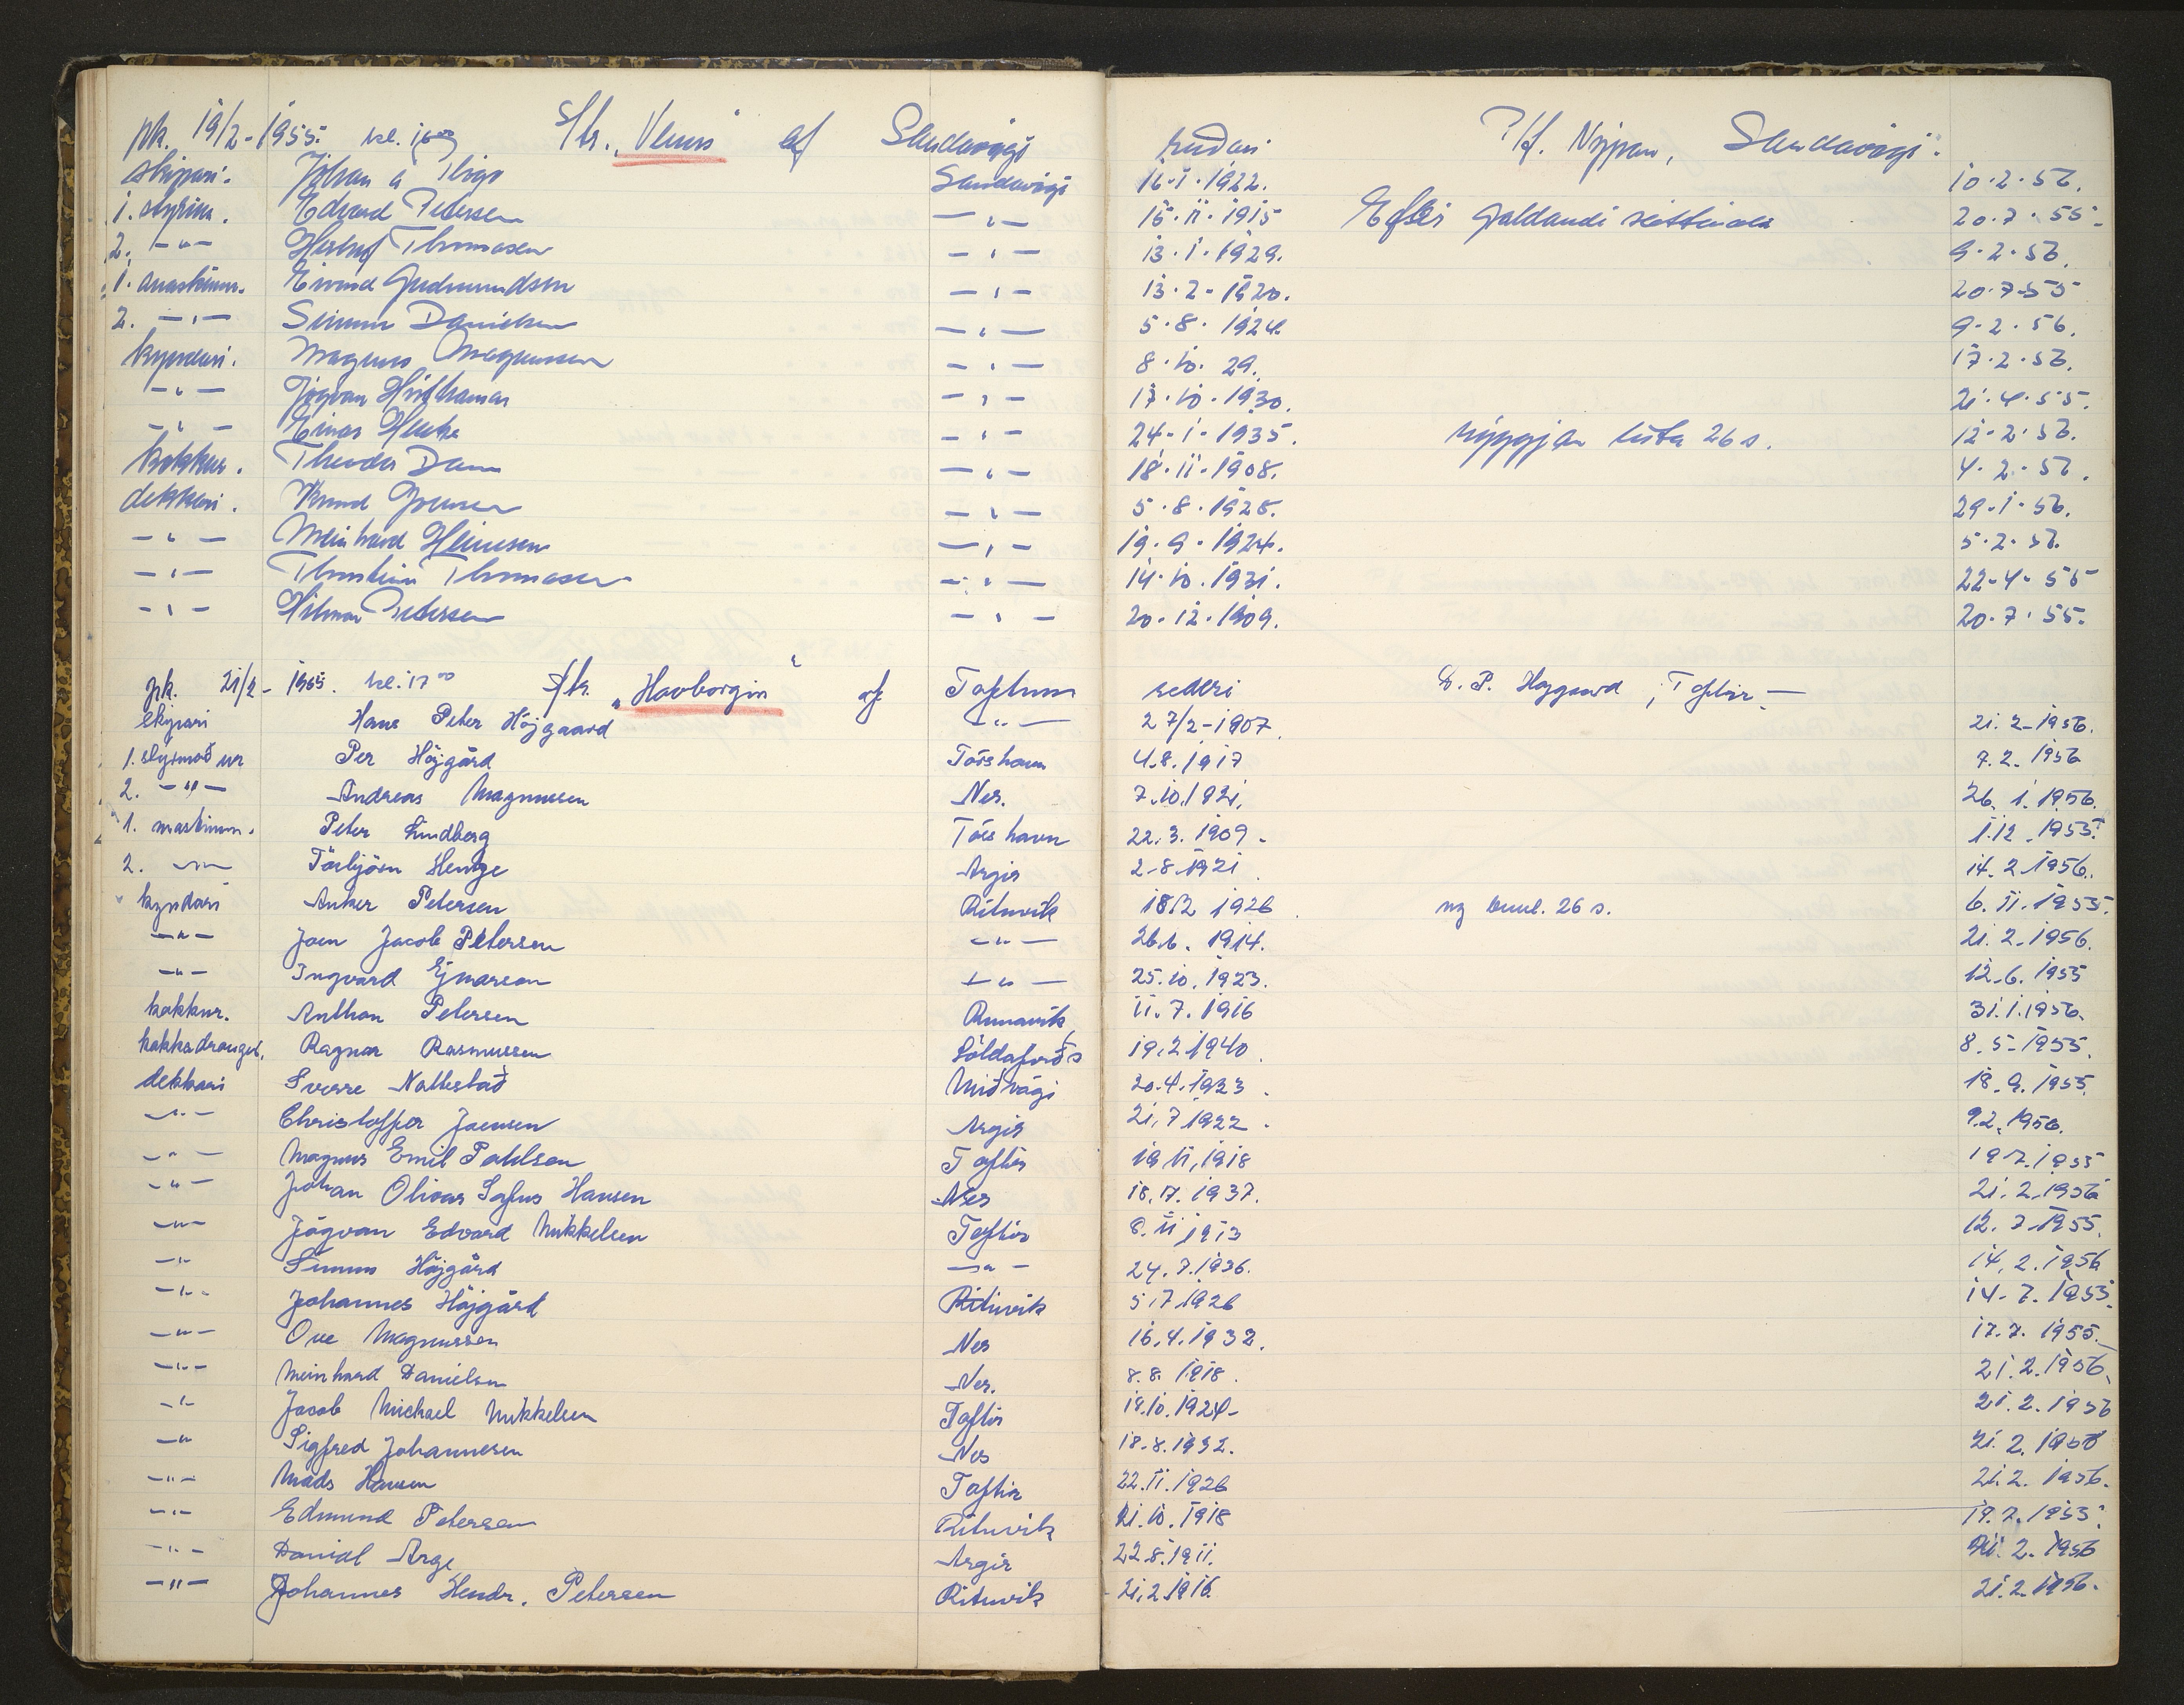 pk. 19/2-1955. kl. 16⁰⁰ S/tr. „Venus" af Sandavági reðari P/f. Nýpan, Sandavági.
skipari. Jóhan á Sandavági 16.1.1922. 10.2.56.
1. stýrim. Edvard Petersen — " — 15.11.1915 Eftir galdandi 20.7.55.
2. — " — Herluf Thomasen — " — 13.1.1929. 9.2.56.
1. maskinm. Eivind Gudmundsen — " — 13.2.1920. 20.7.55
2. — " — Simun Danielsen — " — 5.8.1924. 9.2.56.
kyndari. Magnus Magnussen — " — 8.10.29. 17.2.56.
— " — Jógvan — " — 17.10.1930. 21.4.55.
— " — Einar — " — 24.1.1935. nýggjan lista 26 s. 12.2.56.
kokkur. Theodor Dam — " — 18.11.1908. 4.2.56.
dekkari. Knud Joensen — " — 5.8.1928. 29.1.56.
— " — Meinhard Heinesen — " — 19.9.1924. 5.2.56.
— " — Thorstein Thomasen — " — 14.10.1931. 22.4.55
— " — Hilmar Petersen — " — 20.12.1909. 20.7.55.
pk. 21/2-1955. kl. 17⁰⁰ S/tr. „Havborgin" af Toftum reðari D. P. Højgaard, Toftir —
skipari Hans Peter Højgaard — " — 27/2-1907. 21.2-1956.
1. stýrmaður Per Højgård Tórshavn 4.8.1917 7.2.1956
2. — " — Andreas Magnussen Nes. 7.10.1921. 26.1.1956.
1. maskinm. Peter Lindberg Tórshavn 22.3.1909. 1.12.1955.
2. — " — Tórbjörn Hentze Argir 2-8.1921. 14.2.1956.
kyndari Anker Petersen Rituvík 18/2 1926. ny 26 s. 6.11.1955.
— " — Joen Jacob Petersen — " — 26.6.1914. 21.2.1956.
— " — Ingvard Ejnarson — " — 25.10.1923. 12.6.1955
kokkur. Anthon Petersen Runavík 11.7.1916 31.1.1956.
kokkadrongur. Ragnar Rasmussen Söldafjørð 19.2.1940. 8.5-1955.
dekkari Sverre Nattestað Miðvági 20.4.1933. 18.9.1955.
— " — Christoffer Joensen Argir 21.7.1922. 9.2.1956.
— " — Magnus Emil Poulsen Toftir 19.11.1918 19.7.1955
— " — Johan Olivar Sofus Hansen Nes 18.7.1937. 21.2.1956
— " — Jógvan Edvard Mikkelsen Toftir 8.11.1913 12.7.1955.
— " — Simun Højgård — " — 24.7.1936. 14.2.1956
— " — Johannes Højgård Rituvík 5.7.1926 14.7.1955.
— " — Ove Magnussen Nes 16.4.1932. 17.7.1955.
— " — Meinhard Danielsen Nes. 8.8.1918. 21.2.1956.
— " — Jacob Michael Mikkelsen Toftir 18.10.1924- 21.2.1956
— " — Sigfred Johannesen Nes 18.8.1932. 21.2.1956
— " — Mads Hansen Toftir 22.11.1926 21.2.1956.
— " — Edmund Petersen Rituvík 21.10.1918 19.7.1955.
— " — Daniel Arge Argir 22.8.1911. 21.2.1956
— " — Johannes Hendr. Petersen Rituvík 21.2.1916. 21.2.1956.